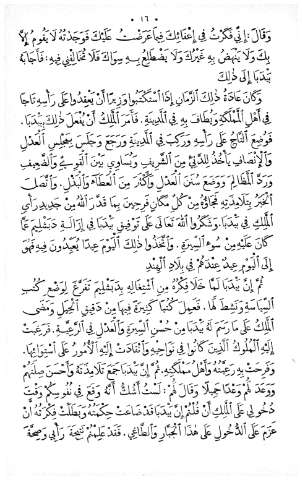 ٠ ١٦ ٠
وَقَالَ: إِنِّي فَكَّرْتُ فِي إِعْفَائِكَ فِيمَا عَرَضْتُ عَلَيْكَ فَوَجَدْتُهُ لَا يَقُومُ إِلَّا
بِكَ وَلَا يَنْهَضُ بِهِ غَيْرُكَ وَلَا يَضْطَلِعُ بِهِ سِوَاكَ فَلَا تُخَالِفْنِي فِيهِ: فَأَجَابَهُ
بَيْدَبَا إِلَى ذٰلِكَ
وَكَانَ عَادَةُ ذٰلِكَ الزَّمَانِ إِذَا اسْتَكْتَبُوا وَزِيرًا أَنْ يَعْقِدُوا عَلَى رَأْسِهِ تَاجًا
فِي أَهْلِ الْمَمْلَكَةِ وَيُطَافَ بِهِ فِي الْمَدِينَةِ. فَأَمَرَ الْمَلِكُ أَنْ يُفْعَلَ ذٰلِكَ بِبَيْدَبَا.
فَوُضِعَ التَّاجُ عَلَى رَأْسِهِ وَرَكِبَ فِي الْمَدِينَةِ وَرَجَعَ وَجَلَسَ بِمَجْلِسِ الْعَدْلِ
وَالْإِنْصَافِ يَأْخُذُ لِلدَّنِيِّ مِنَ الشَّرِيفِ وَيُسَاوِي بَيْنَ الْقَوِيِّ وَالضَّعِيفِ
وَرَدَّ الْمَظَالِمَ وَوَضَعَ سُنَنَ الْعَدْلِ وَأَكْثَرَ مِنَ الْعَطَاءِ وَالْبَذْلِ. وَاتَّصَلَ
الْخَبَرُ بِتَلَامِذَتِهِ فَجَاؤُوهُ مِنْ كُلِّ مَكَانٍ فَرِحِينَ بِمَا جَدَّدَ اللّٰهُ مِنْ جَدِيدِ رَأْيِ
الْمَلِكِ فِي بَيْدَبَا. وَشَكَرُوا اللّٰهَ تَعَالَى عَلَى تَوْفِيقِ بَيْدَبَا فِي إِزَالَةِ دَبْشَلِيمَ عَمَّا
كَانَ عَلَيْهِ مِنْ سُوءِ السِّيرَةِ. وَاتَّخَذُوا ذٰلِكَ الْيَوْمَ عِيدًا يُعَيِّدُونَ فِيهِ فَهُوَ
إِلَى الْيَوْمِ عِيدٌ عِنْدَهُمْ فِي بِلَادِ الْهِنْدِ
ثُمَّ إِنَّ بَيْدَبَا لَمَّا خَلَا فِكْرُهُ مِنِ اشْتِغَالِهِ بِدَبْشَلِيمَ تَفَرَّغَ لِوَضْعِ كُتُبِ
السِّيَاسَةِ وَنَشِطَ لَهَا. فَعَمِلَ كُتُبًا كَثِيرَةً فِيهَا مِنْ دَقِيقِ الْحِيَلِ وَمَضَى
الْمَلِكُ عَلَى مَا رَسَمَ لَهُ بَيْدَبَا مِنْ حُسْنِ السِّيرَةِ وَالْعَدْلِ فِي الرَّعِيَّةِ. فَرَغِبَتْ
إِلَيْهِ الْمُلُوكُ الَّذِينَ كَانُوا فِي نَوَاحِيهِ وَانْقَادَتْ إِلَيْهِ الْأُمُورُ عَلَى اسْتِوَائِهَا.
وَفَرِحَتْ بِهِ رَعِيَّتُهُ وَأَهْلُ مَمْلَكَتِهِ. ثُمَّ إِنَّ بَيْدَبَا جَمَعَ تَلَامِذَتَهُ وَأَحْسَنَ صِلَتَهُمْ
وَوَعَدَ لَهُمْ وَعْدًا جَمِيلًا وَقَالَ لَهُمْ: لَسْتُ أَشُكُّ أَنَّهُ وَقَعَ فِي نُفُوسِكُمْ وَقْتَ
دُخُولِي عَلَى الْمَلِكِ أَنْ قُلْتُمْ إِنَّ بَيْدَبَا قَدْ ضَاعَتْ حِكْمَتُهُ وَبَطَلَتْ فِكْرَتُهُ إِنْ
عَزَمَ عَلَى الدُّخُولِ عَلَى هٰذَا الْجَبَّارِ وَالطَّاغِي. فَقَدْ عَلِمْتُمْ نَتِيجَةَ رَأْيِي وَصِحَّةَ